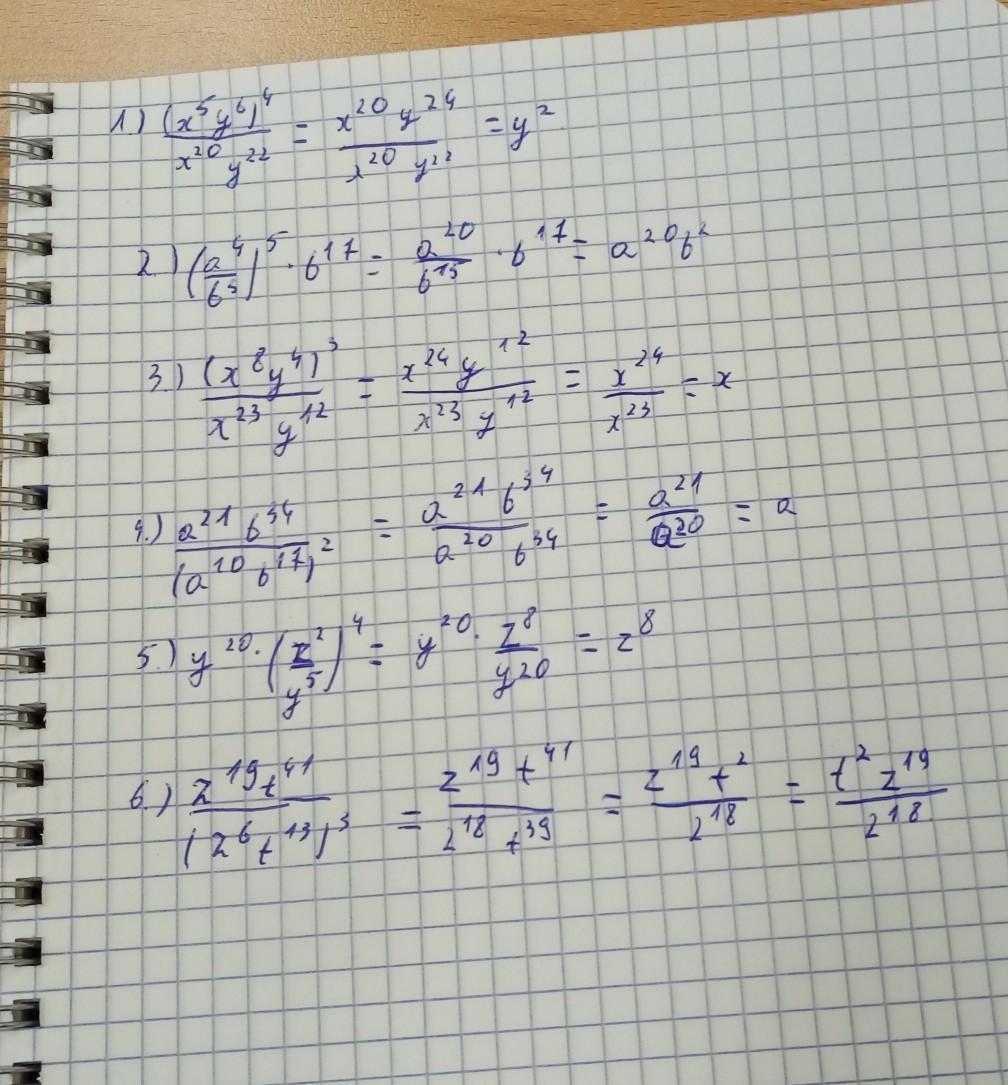 1.) (x⁵y⁶)⁴ / x²⁰ y²² = x²⁰ y²⁴ / x²⁰ y²² = y²
2.) (a⁴ / b³)⁵ · b¹⁷ = a²⁰ / b¹⁵ · b¹⁷ = a²⁰b²
3.) (x⁸y⁴)³ / x²³ y¹² = x²⁴ y¹² / x²³ y¹² = x²⁴ / x²³ = x
4.) a²¹ b³⁴ / (a¹⁰ b¹⁷)² = a²¹ b³⁴ / a²⁰ b³⁴ = a²¹ / a²⁰ = a
5.) y²⁰ · (z² / y⁵)⁴ = y²⁰ · z⁸ / y²⁰ = z⁸
6.) z¹⁹t⁴¹ / (z⁶t¹³)³ = z¹⁹ t⁴¹ / z¹⁸ t³⁹ = z¹⁹ t² / z¹⁸ = t² z¹⁹ / z¹⁸